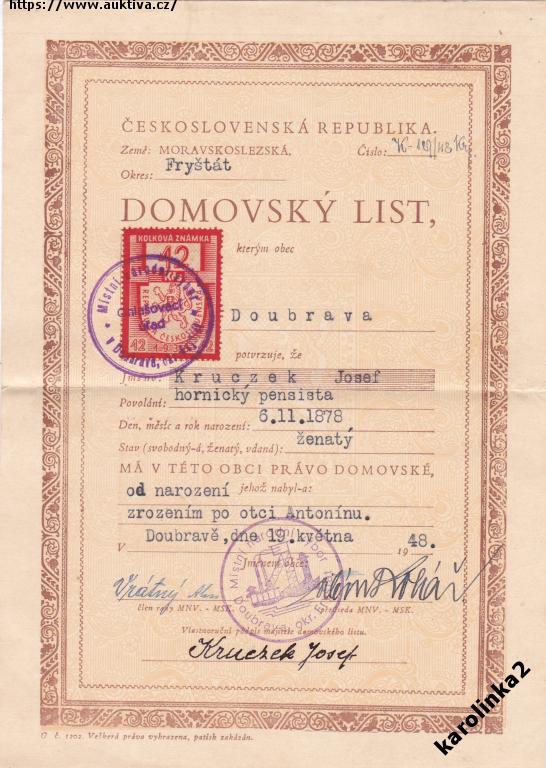 https://www.auktiva.cz/
ČESKOSLOVENSKÁ REPUBLIKA.
Země: MORAVSKOSLEZSKÁ.
Číslo:
Okres: Fryštát
DOMOVSKÝ LIST,
kterým obec
KOLKOVÁ ZNÁMKA
42
Doubrava
Ohlašovací
úřad
42
potvrzuje, že
Jméno: Kruczek Josef
Povolání: hornický pensista
Den, měsíc a rok narození: 6.11.1878
Stav (svobodný-á, ženatý, vdaná): ženatý
MÁ V TÉTO OBCI PRÁVO DOMOVSKÉ,
od narození jehož nabyl-a:
zrozením po otci Antonínu.
V Doubravě, dne 19. května 1948.
Jménem obce:
Místní národní výbor
Doubrava, okr.
Vrátný
člen rady MNV. - MSK.
předseda MNV. - MSK.
Vlastnoruční podpis majitele domovského listu.
Kruczek Josef
č. 1202. Veškerá práva vyhrazena, patisk zakázán.
karolinka2